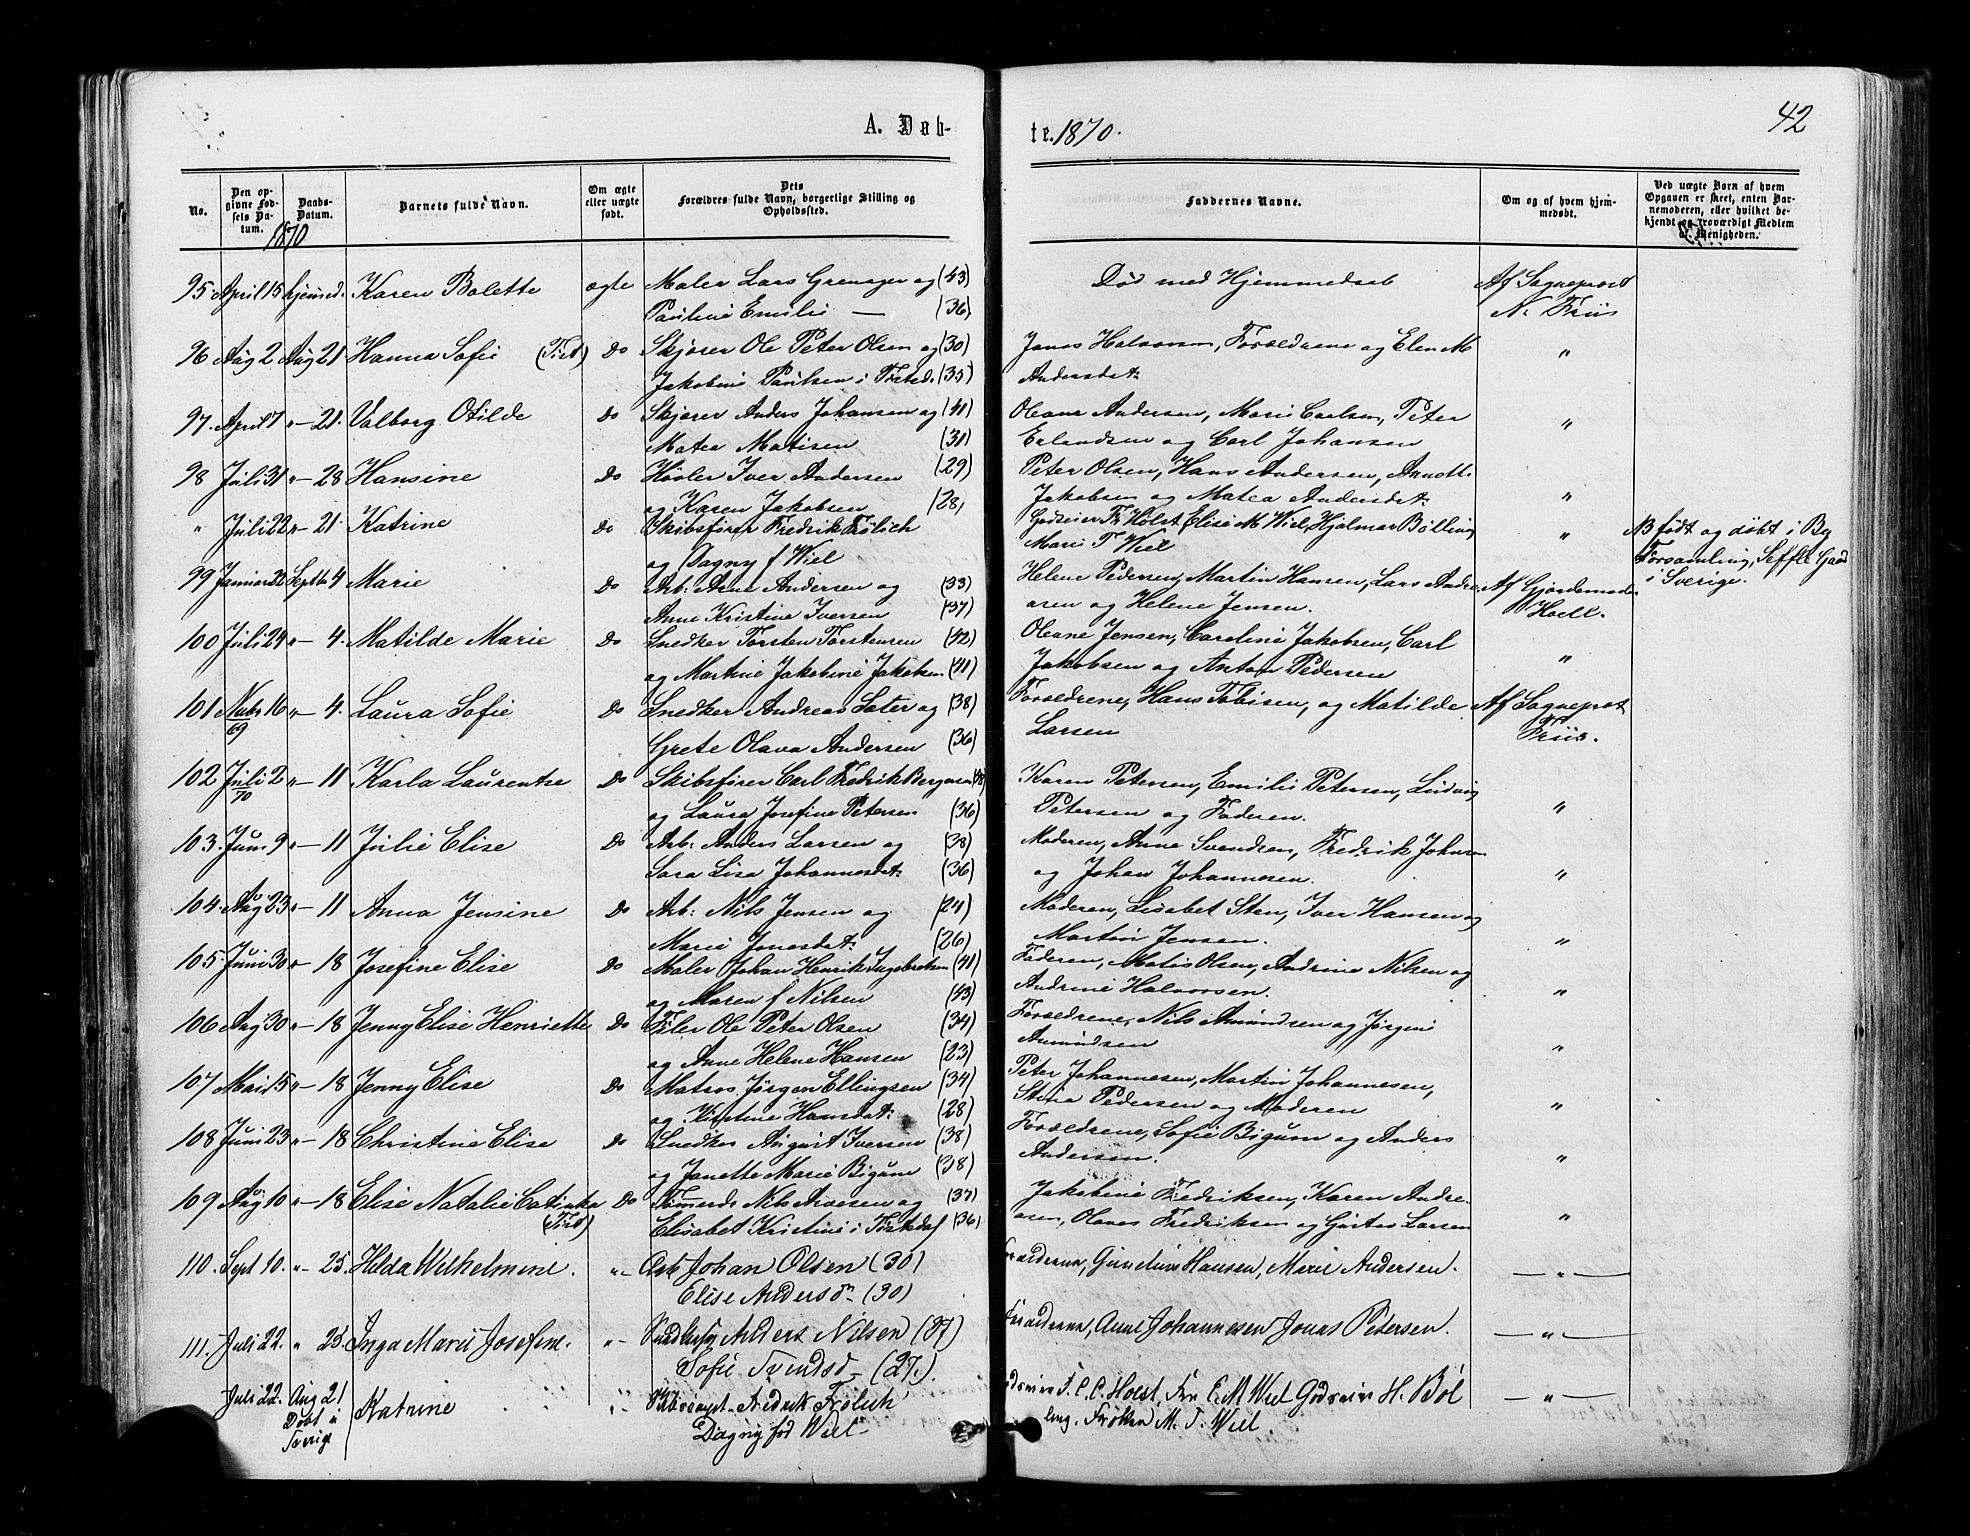 A. Døb-
te. 1870.
42
No.
Den op-
givne Fød-
sels Da-
tum.
Daabs-
Datum.
Barnets fulde Navn.
Om ægte
eller uægte
født.
Dets
Forældres fulde Navn, borgerlige Stilling og
Opholdssted.
Faddernes Navne.
Om og af hvem hjem-
medøbt.
Ved uægte Børn af hvem
Opgaven er skeet, enten Bar-
nemoderen, eller hvilket be-
kjendt og troværdigt Medlem
af Menigheden.
1870
95 April 15 hjemmed. Karen Bolette ægte Maler Lars Grenager og (43) Død med Hjemmedaab Af Sogneprest
Pauline Emilie — (36) N. Friis
96 Aug 2 Aug 21 Hanna Sofie (Tist) Do Skjører Ole Peter Olsen og (30) Jonas Halvorsen, Forældrene og Elen M "
Jakobine Paulsen i Tisted. (35) Andersdat:
97. April 7 " — 21. Valborg Otilde Do Skjører Anders Johansen og (41) Oleane Andersen, Marie Carlsen, Peter "
Matea Matisen (31) Erlandsen og Carl Johansen
98 Juli 31 " — 28 Hansine Do Høvler Iver Andersen (29) Peter Olsen, Hans Andersen, Anette
og Karen Jakobsen (28) Jakobsen og Matea Andersdat: "
" Juli 22 " — 21. Katrine Do Skibsfører Fredrik Frölich Godseier Fr Holst, Elise M Wiel, Hjalmar Bölling " NB født og døbt i By
og Dagny f Wiel Marie T Wiel Forsamling, Seffle Gaard
i Sverige.
99 Januar 22 Septbr 4 Marie Do Arb: Arne Andersen og (33) Helene Pedersen, Martin Hansen, Lars Andre- Af Gjordemoder
Anne Kristine Iversen (37) asen og Helene Jensen. Hoell.
100 Juli 24 " — 4. Matilde Marie Do Snedker Torsten Torstensen (42) Oleane Jensen, Caroline Jakobsen, Carl
og Martine Jakobine Jakobsen (41) Jakobsen og Anton Pedersen "
101 Novbr 16 " — 4. Laura Sofie Do Snedker Andreas Sater og (38) Forældrene, Hans Tobisen, og Matilde Af Sogneprest
69 Grete Olava Andersen (36) Larsen Friis.
102 Juli 2 " — 11 Karla Laurentse Do Skibsfører Carl Fredrik Bergersen (48) Karen Petersen, Emilie Petersen, Ludvig
70 og Laura Josefine Petersen (36) Petersen og Faderen. "
103. Juni 9 " — 11 Julie Elise Do Arb: Anders Larsen og (38) Moderen, Anne Svendsen, Fredrik Johnsen
Sara Lisa Johannesdat: (36) og Johan Johannesen. "
104. Aug 23 " — 11 Anna Jensine Do Arb: Nils Jensen og (24) Moderen, Lisabet Sten, Iver Hansen og
Marie Jonasdat: (26) Martin Jensen. "
105. Juni 30 " — 18 Josefine Elise Do Maler Johan Henrik Ingebretsen (41) Faderen, Matis Olsen, Andrine Nilsen og
og Maren f Nilsen (43) Andrine Halvorsen. "
106 Aug 30 " — 18 Jenny Elise Henriette Do Filer Ole Peter Olsen (34) Forældrene, Nils Amundsen og Jørgine
og Anne Helene Hansen (23) Amundsen "
107 Mai 15 " — 18 Jenny Elise Do Matros Jørgen Ellingsen (34) Peter Johannesen, Martin Johannesen,
og Kirstine Hansdat: (28) Stina Pedersen og Moderen "
108 Juni 23 " — 18 Christine Elise Do Snedker August Iversen (38) Forældrene, Sofie Bigum og Anders
og Janette Marie Bigum (38) Andersen. "
109 Aug 10 " — 18 Elise Natalie Catinka Do Tømmerds Nils Arvesen og (37) Jakobine Fredriksen, Karen Andre-
(Tist) Elisabet Kristine i Tistedal (36) asen, Olaves Fredriksen og Gustav Larsen "
110. Sept 10. " — 25. Hilda Wilhelmine. " — Arb Johan Olsen (30) Forældrene, Gundius Hansen, Marie Andersen. — " —
Elise Andersd— (30)
111. Juli 22. " 25. Inga Marie Josefine. " — Anders Nilsen (27) Forældrene, Anne Johannesen Jonas Petersen. — " —
Sofie Svendsd— (27.)
Juli 22. Aug 21 Katrine " — Fredrik Frölich Godseier F. C. C. Holst, Fru E. M Wiel Godseier H. Böl — " —
Døbt i Dagny fød Wiel— ling. Frøken M. T. Wiel.
Sverige